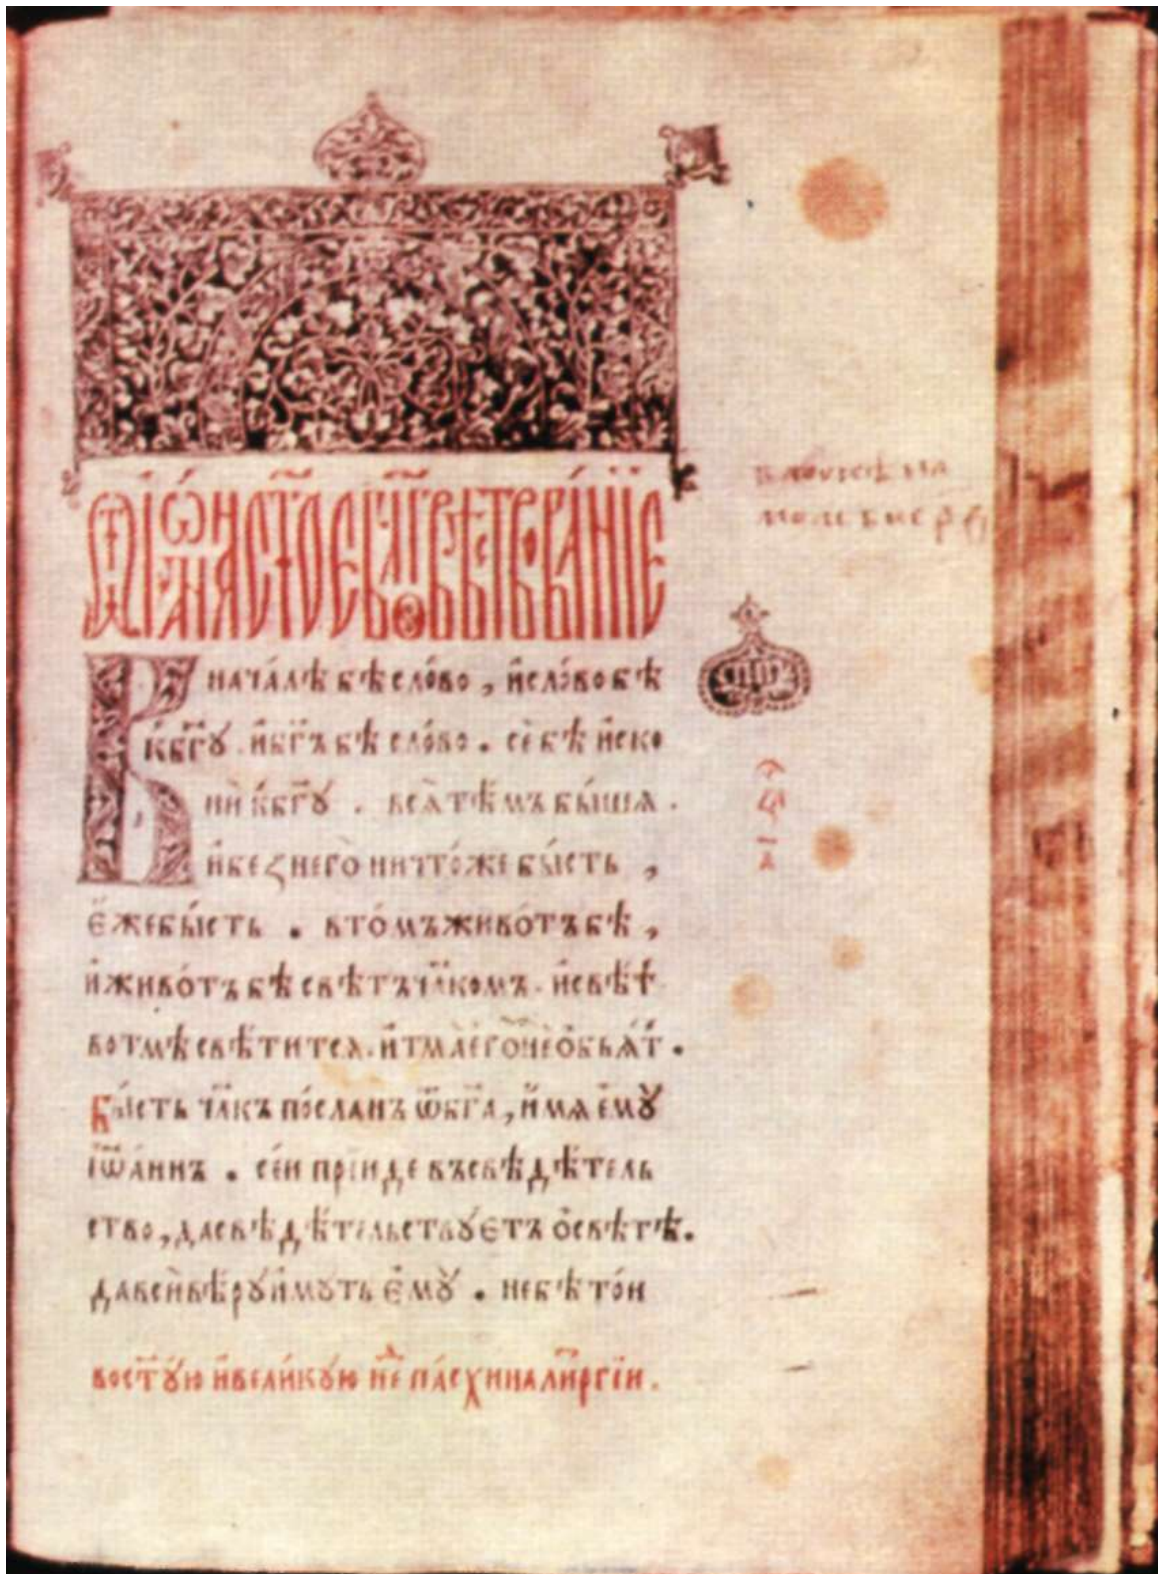 Ѿ іѡ́анна ст҃ое бл҃говѣствова́нїе
В нача́лѣ бѣ сло́во, и҆ сло́во бѣ
к бг҃ꙋ. и҆ бг҃ъ бѣ сло́во. се̑ бѣ и҆ско
ни̑ к бг҃ꙋ. всѧ̑ тѣ́мъ бы́шѧ.
и҆ без него̀ ничто́же бы́сть,
є҆́же бы́сть. в то́мъ живо́тъ бѣ,
и҆ живо́тъ бѣ свѣ́тъ чл҃комъ. и҆ свѣ́т
во тмѣ̀ свѣ́титсѧ. и҆ тма̀ є҆го̀ не ѻ҆б̾ѧ́т.
Бы́сть чл҃къ по́сланъ ѿ бг҃а, и҆́мѧ є҆мꙋ̀
іѡ҆а́ннъ. се́и прїи́де въ свѣдѣ́тель
ство, да свѣдѣ́тельствꙋєтъ ѻ҆ свѣ́тѣ.
да всѝ вѣ́рꙋ и҆́мꙋть є҆мꙋ̀. не бѣ то́и
во ст҃ꙋ́ю и҆ вели́кꙋю нед҃ пасхи на лит҃ргїи.